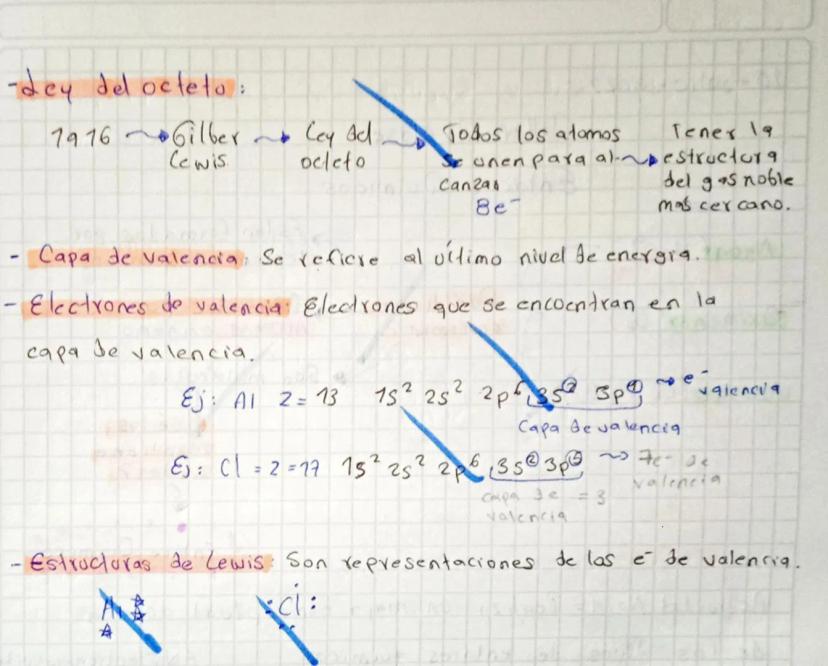 - Ley del octeto:
1916 ~> Gilber ~> Ley del ~> Todos los atomos Tener la
Lewis octeto se unen para al- ~> estructura
canzar del gas noble
8e⁻ mas cercano.
- Capa de valencia: Se refiere al último nivel de energia.
- Electrones de valencia: Electrones que se encuentran en la
capa de valencia.
Ej: Al Z = 13 1s² 2s² 2p⁶ 3s² 3p¹ ~> e⁻ valencia
Capa de valencia
Ej: Cl = Z = 17 1s² 2s² 2p⁶ 3s² 3p⁵ ~> 7e⁻ de
valencia
capa de = 3
valencia
- Estructuras de Lewis: Son representaciones de los e⁻ de valencia.
Al :Cl: